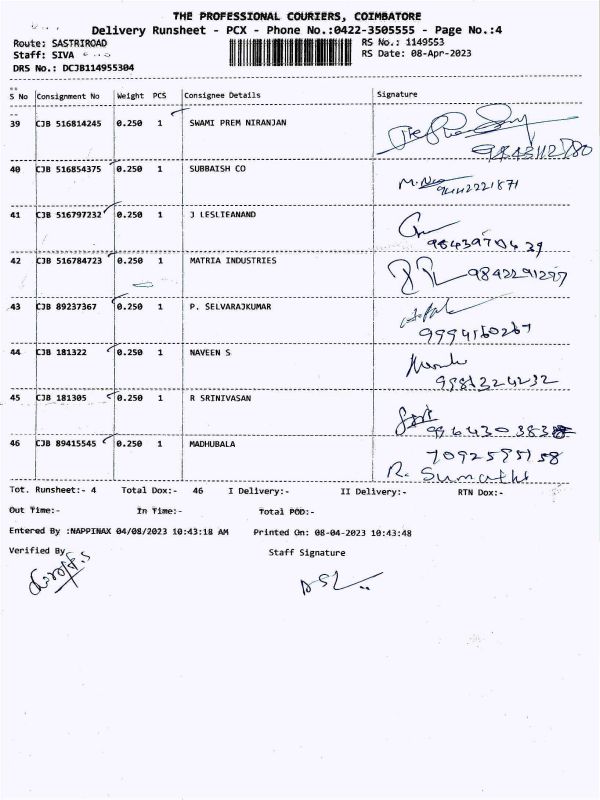 THE PROFESSIONAL COURIERS, COIMBATORE
Delivery Runsheet - PCX - Phone No.:0422-3505555 - Page No.:4
Route: SASTRIROAD RS No.: 1149553
Staff: SIVA RS Date: 08-Apr-2023
DRS No.: DCJB114955304
S No Consignment No Weight PCS Consignee Details Signature
39 CJB 516814245 0.250 1 SWAMI PREM NIRANJAN
9843112780
40 CJB 516854375 0.250 1 SUBBAISH CO
9442221871
41 CJB 516797232 0.250 1 J LESLIEANAND
9843970439
42 CJB 516784723 0.250 1 MATRIA INDUSTRIES 9842291297
43 CJB 89237367 0.250 1 P. SELVARAJKUMAR
9994160267
44 CJB 181322 0.250 1 NAVEEN S
45 CJB 181305 0.250 1 R SRINIVASAN
46 CJB 89415545 0.250 1 MADHUBALA
7092595158
R. Sumathi
Tot. Runsheet:- 4 Total Dox:- 46 I Delivery:- II Delivery:- RTN Dox:-
Out Time:- In Time:- Total POD:-
Entered By :NAPPINAX 04/08/2023 10:43:18 AM Printed On: 08-04-2023 10:43:48
Verified By Staff Signature